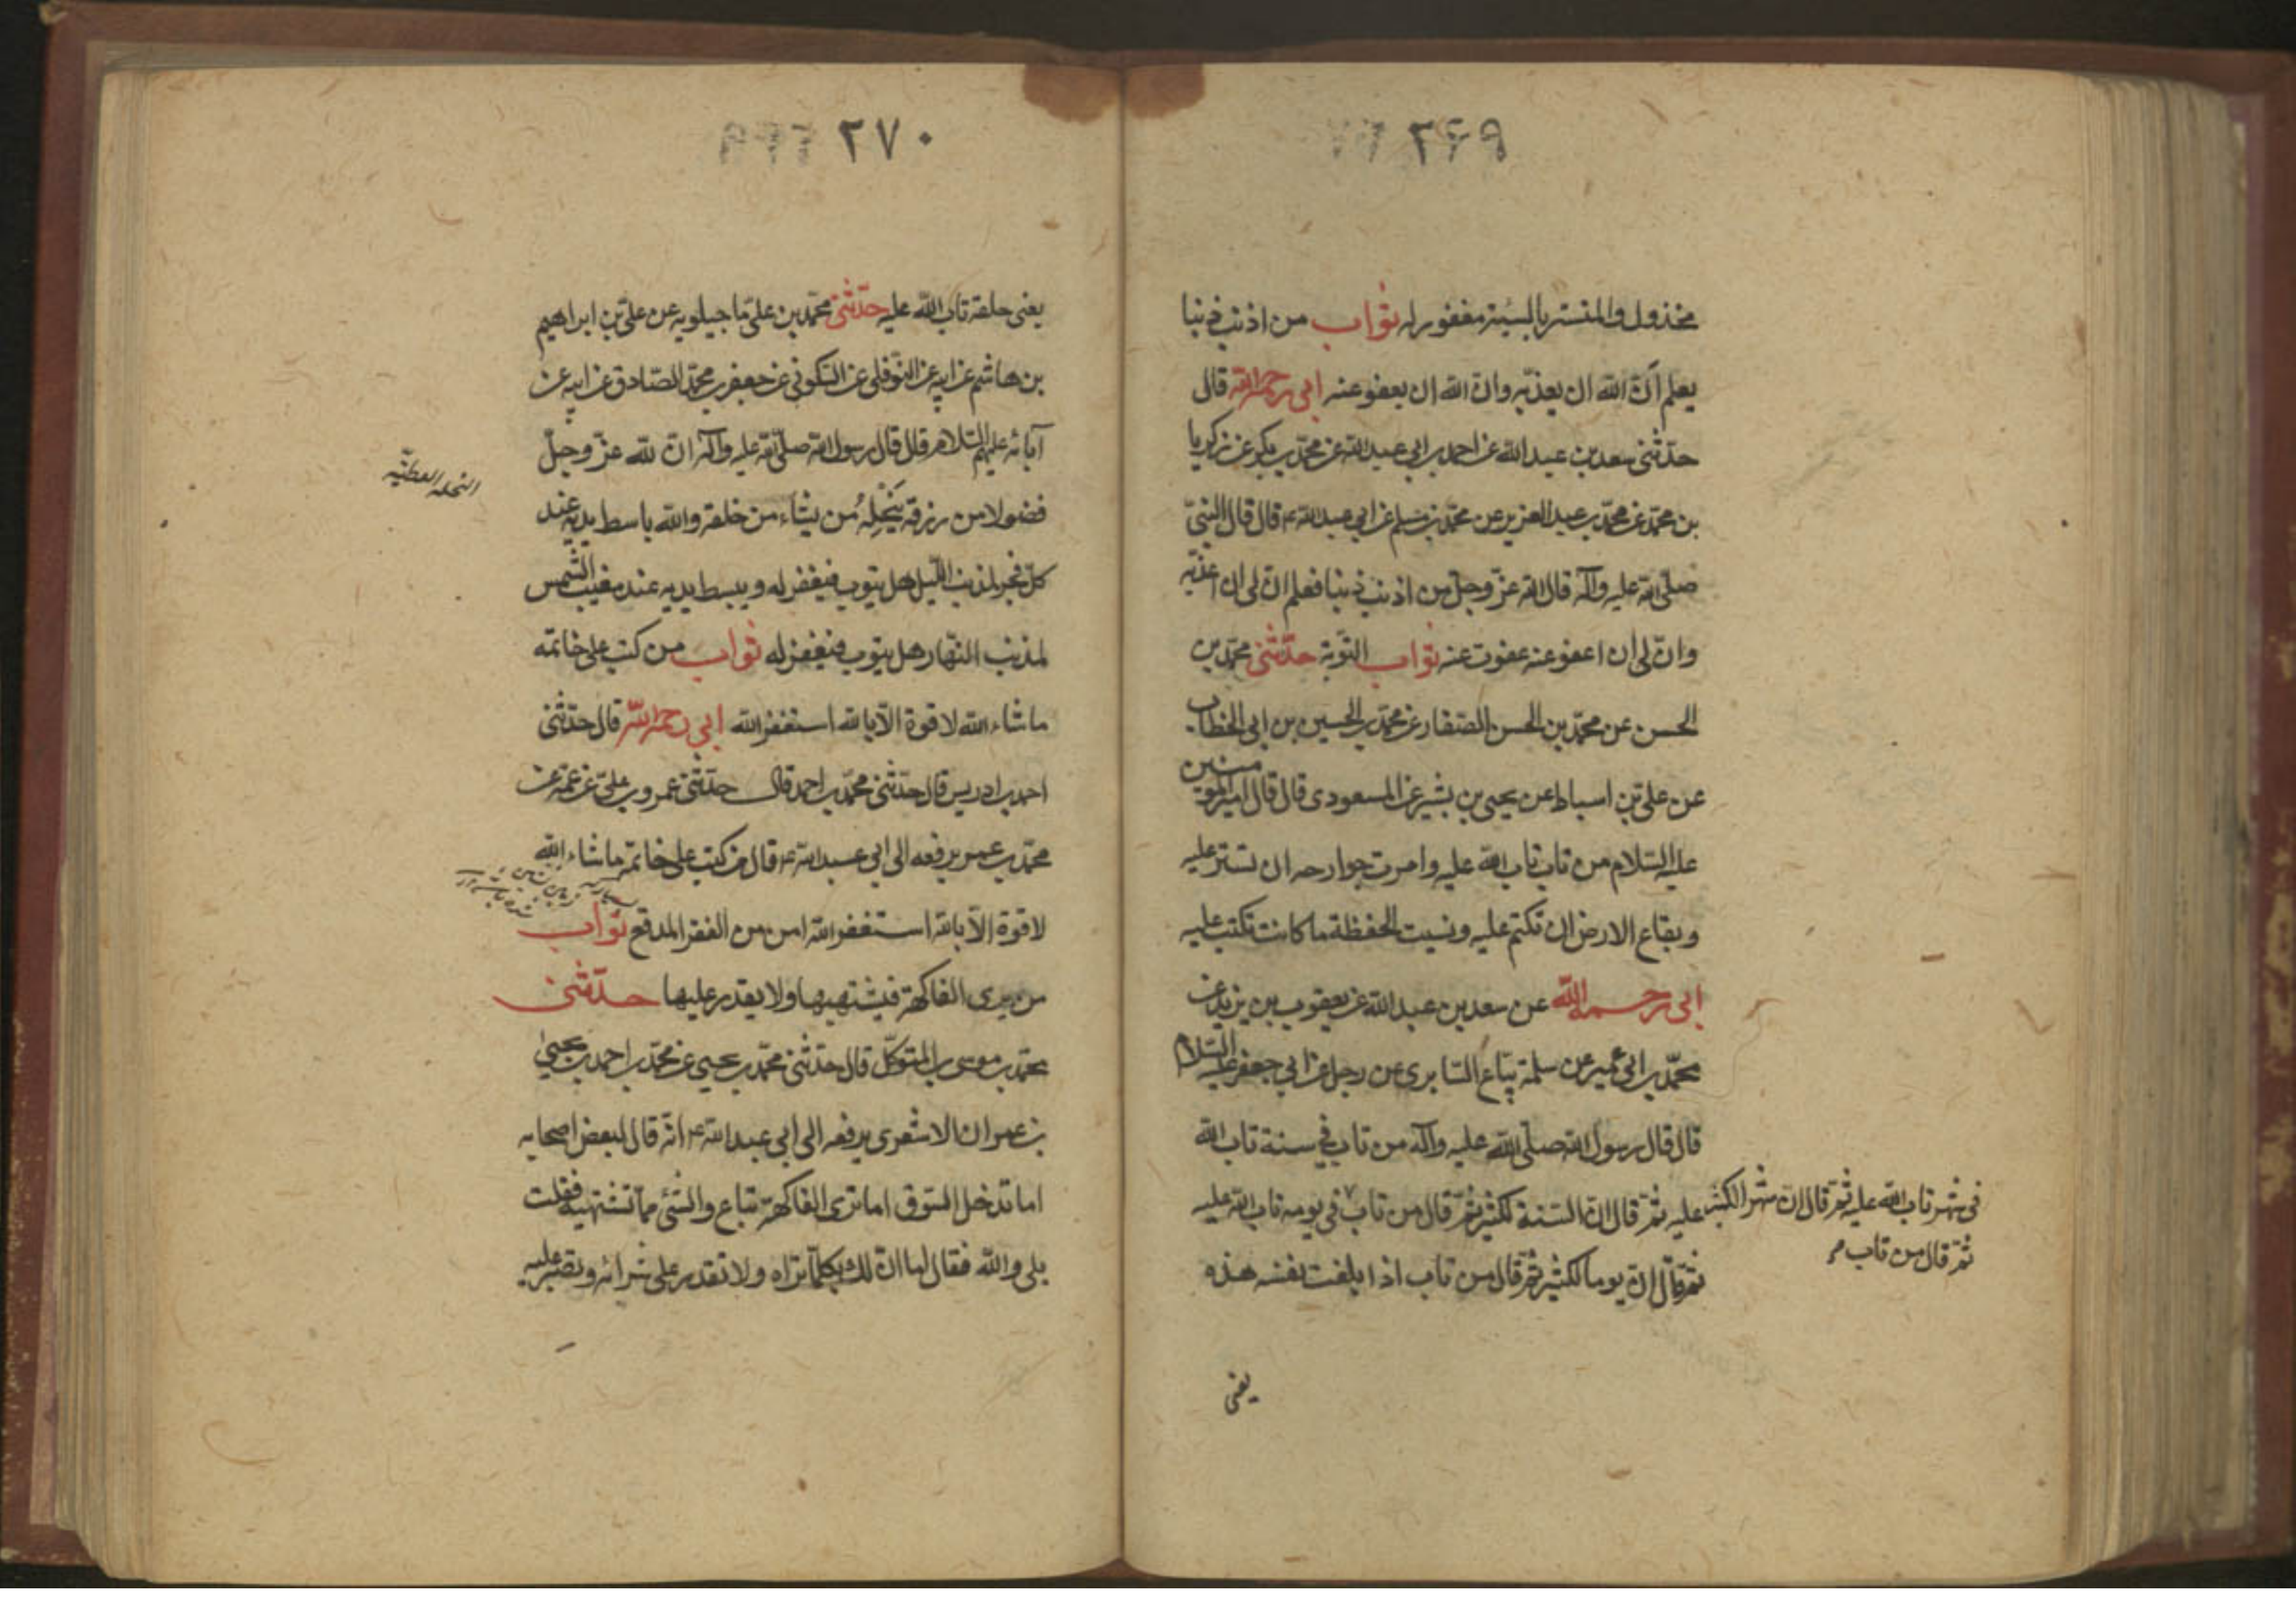 ٢۶٩
مخذول والمتستر بالسيئة مغفور له ثواب من اذنب ذنبا
يعلم ان الله ان يعذبه وان الله ان يعفو عنه ابى رحمه الله قال
حدثنى سعد بن عبد الله عن احمد بن ابى عبد الله عن محمد بن بكر عن زكريا
بن محمد عن محمد بن عبد العزيز عن محمد بن مسلم عن ابى عبد الله ع قال قال النبىّ
صلى الله عليه وآله قال الله عزّ وجلّ من اذنب ذنبا فعلم انّ لى ان اعذبه
وانّ لى ان اعفو عنه عفوت عنه ثواب التوبة حدّثنى محمّد بن
الحسن عن محمّد بن الحسن الصفار عن محمّد بن الحسين بن ابى الخطاب
عن على بن اسباط عن يحيى بن بشير عن المسعودى قال قال امير المؤمنين
عليه السلام من تاب تاب الله عليه وامرت جوارحه ان تستر عليه
وبقاع الارض ان تكتم عليه ونسيت الحفظة ما كانت تكتب عليه
ابى رحمه الله عن سعد بن عبد الله عن يعقوب بن يزيد عن
محمّد بن ابى عمير عن سلمة بيّاع السّابرى عن رجل عن ابى جعفر عليه السلام
قال قال رسول الله صلّى الله عليه وآله من تاب فى سنة تاب الله
عليه ثمّ قال انّ السّنة لكثير ثمّ قال من تاب فى يومه تاب الله عليه
ثمّ قال انّ يوما لكثير ثمّ قال من تاب اذا بلغت نفسه هذه
فى شهر تاب الله عليه ثمّ قال انّ شهر الكثير
ثمّ قال من تاب
يعنى
٢٧٠
يعنى حلقه تاب الله عليه حدّثنى محمّد بن علىّ ماجيلويه عن علىّ بن ابراهيم
بن هاشم عن ابيه عن النّوفلى عن السّكونى عن جعفر بن محمّد الصّادق عن ابيه عن
آبائه عليهم السّلام قال قال رسول الله صلّى الله عليه وآله انّ لله عزّ وجلّ
فضولا من رزقه يَنحَلُه مُن يشاء من خلقه والله باسط يديه عند
كلّ فجر لمذنب اللّيل هل يتوب فيغفر له ويبسط يديه عند مغيب الشمس
لمذنب النّهار هل يتوب فيغفر له ثواب من كتب على خاتمه
ماشاء الله لا قوة الّا بالله استغفر الله ابى رحمه الله قال حدّثنى
احمد بن ادريس قال حدّثنى محمّد بن احمد قال حدّثنى عمرو بن علىّ عن عمّه عن
محمّد بن عمر يرفعه الى ابى عبد الله ع قال من كتب على خاتمه ماشاء الله
لا قوة الّا بالله استغفر الله امن من الفقر المدقع ثواب
من يرى الفاكهة فيشتهيها ولا يقدر عليها حدّثنى
محمّد بن موسى بن المتوكّل قال حدّثنى محمّد بن يحيى عن محمّد بن احمد بن يحيى
بن عمران الاشعرى يرفعه الى ابى عبد الله ع انّه قال لبعض اصحابه
اما تدخل السّوق اما ترى الفاكهة تباع والشّىء ممّا تشتهيه فقلت
بلى والله فقال اما انّ لك بكلّ ما تراه ولا تقدر على شرائه وتصبر عليه
النحله العطيّه